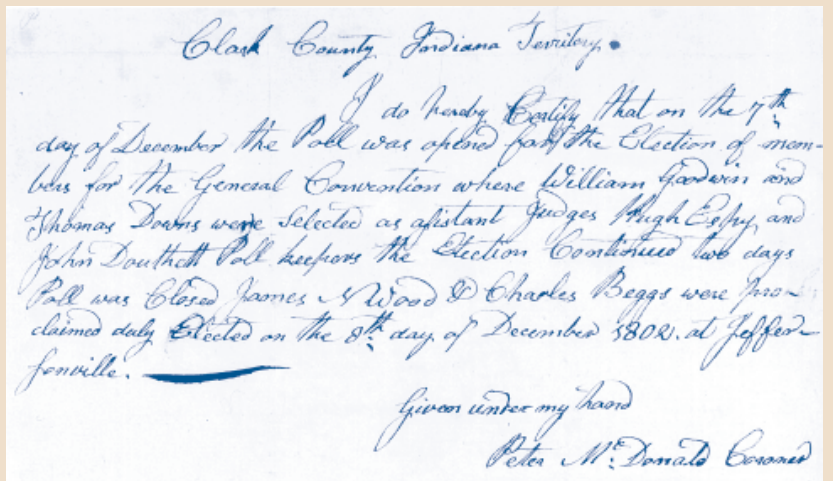 Clark County Indiana Territory.
I do hereby Certify that on the 7th
day of December the Poll was opened for the Election of mem-
bers for the General Convention where William Goodwin and
Thomas Downs were Selected as assistant Judges Hugh Espy and
John Douthett Poll keepers the Election Continued two days
Poll was Closed James N Wood & Charles Beggs were pro-
claimed duly Elected on the 8th day of December 1802. at Jeffer-
sonville.
Given under my hand
Peter Mc Donald Coroner